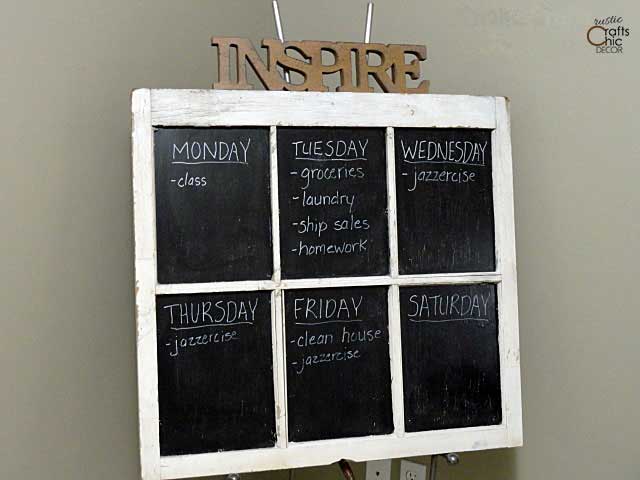 rustic
Crafts
Chic
DECOR
INSPIRE
MONDAY
-class
TUESDAY
-groceries
-laundry
-ship sales
-homework
WEDNESDAY
-jazzercise
THURSDAY
-jazzercise
FRIDAY
-clean house
-jazzercise
SATURDAY